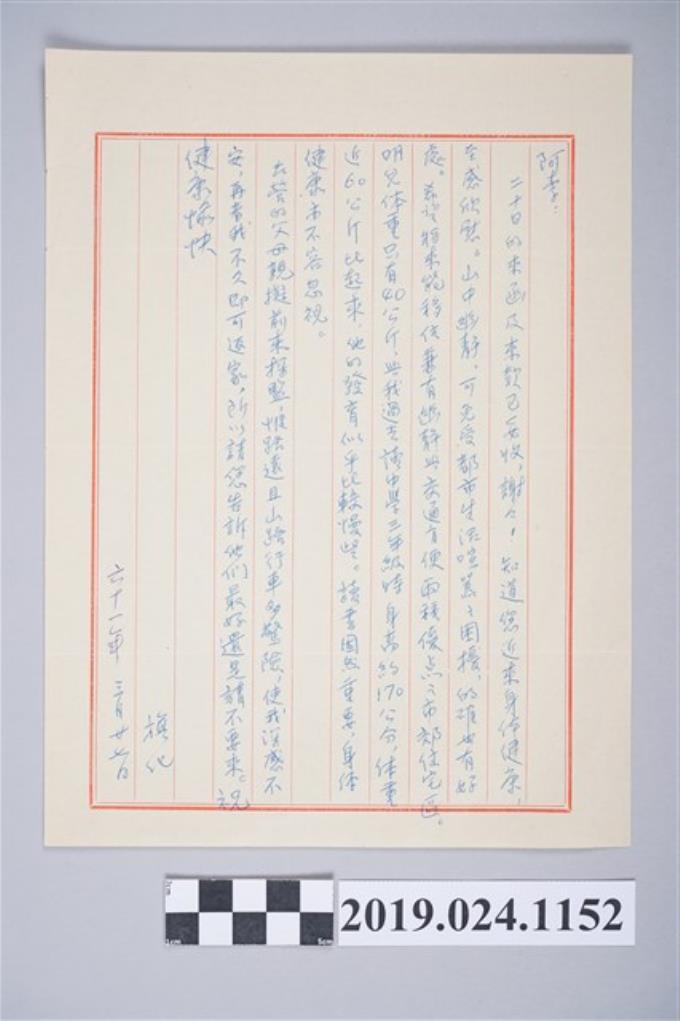 阿李:
二十日的來函及來款已妥收,謝々!知道您近來身体健康,
至感欣慰。山中幽靜,可免受都市生活喧囂之困擾,的確也有好
處。希望將來能移住兼有幽靜與交通方便兩種優点之市郊住宅區。
明兒体重只有40公斤,與我過去讀中學三年級時身高約170公分,体重
近60公斤比起來,他的發育似乎比較慢些。讀書固然重要,身体
健康亦不容忽視。
左營的父母親擬前來探監,惟路遠且山路行車多驚險,使我深感不
安,再者我不久即可返家,所以請您告訴他們最好還是請不要來。祝
健康愉快
旗化
六十一年三月廿七日
1cm
5cm
2019.024.1152